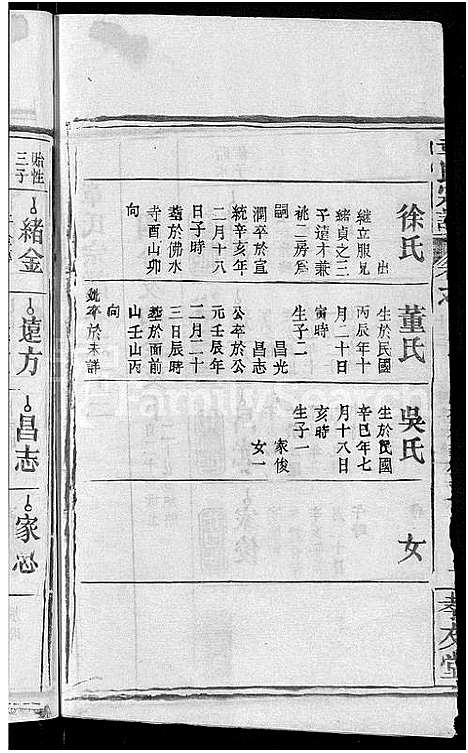 徐氏
出
繼立服兄
緒貞之三
子遠才兼
祧二房爲
嗣
潤卒於宣
統辛亥年
二月十八
日子時
葬於佛水
寺酉山卯
向
董氏
生於民國
丙辰年十
月二十日
寅時
生子二
昌光
昌志
公卒於公
元壬辰年
二月二十
三日辰時
葬於面前
山壬山丙
向
氏卒於未詳
吳氏
生於民國
辛巳年七
月十八日
亥時
生子一
家俊
女一
女
孝友堂
貽性
三子
緒金
遠方
昌志
家